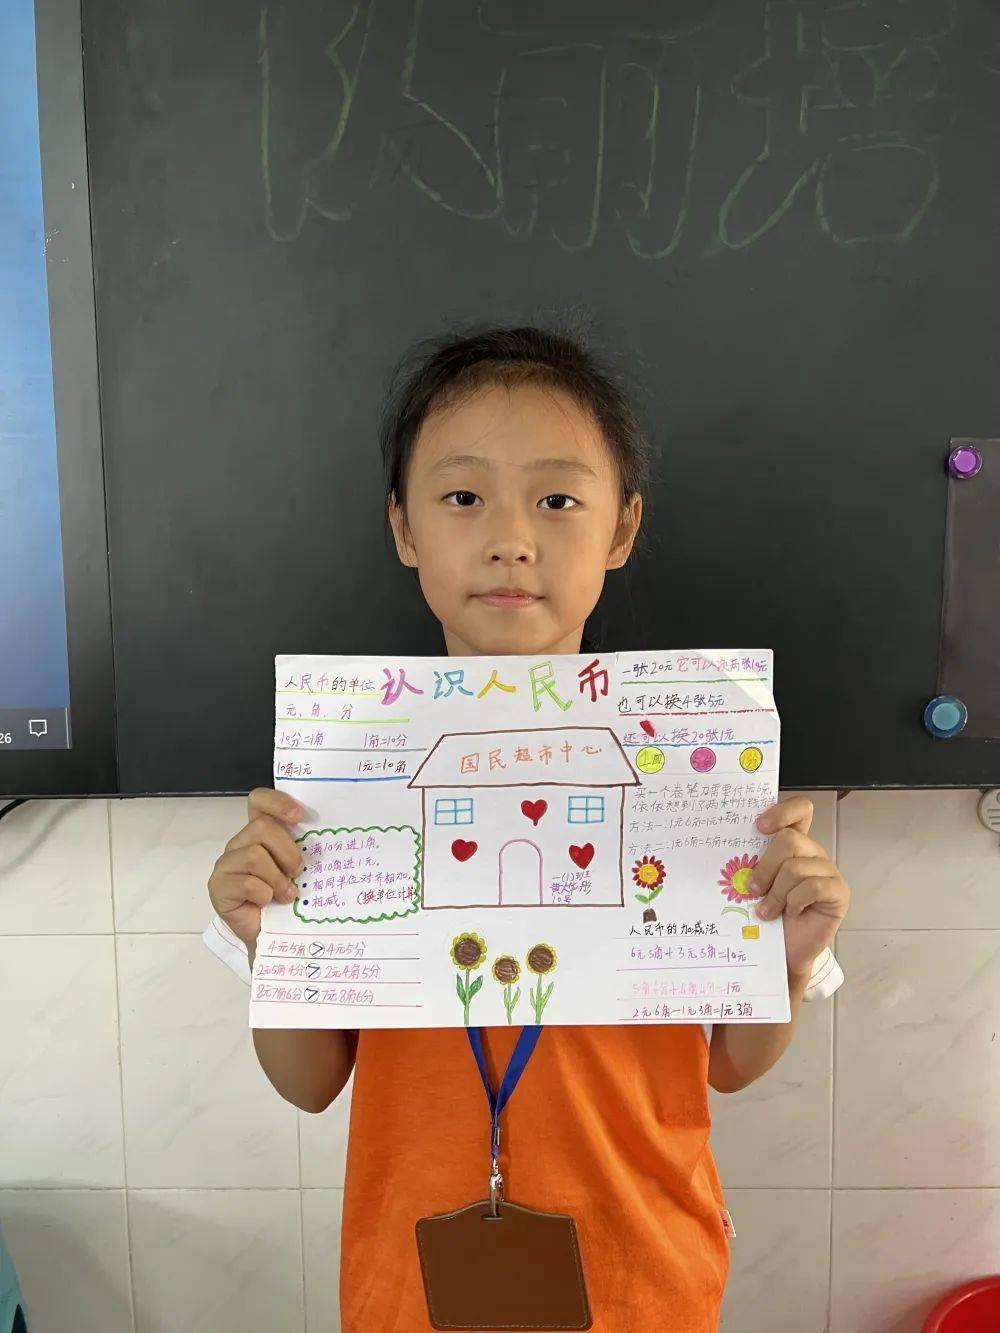 认识人民币
人民币的单位
元、角、分
10分=1角 1角=10分
10角=1元 1元=10角
满10分进1角。
满10角进1元。
相同单位对齐相加,
相减。(换单位计算
4元5角>4元5分
2元5角4分>2元4角5分
8元7角6分>7元8角6分
国民超市中心
一(1)班
10号
一张20元它可以换两张10元
也可以换4张5元
还可以换20张1元
买一个卷笔刀需要付1元6角,
依依想到了两种付钱方法
方法一:1元6角=1元+5角+1
方法二:1元6角=5角+5角+5角+
人民币的加减法
6元5角+3元5角=10元
2元6角-1元3角=1元3角
26